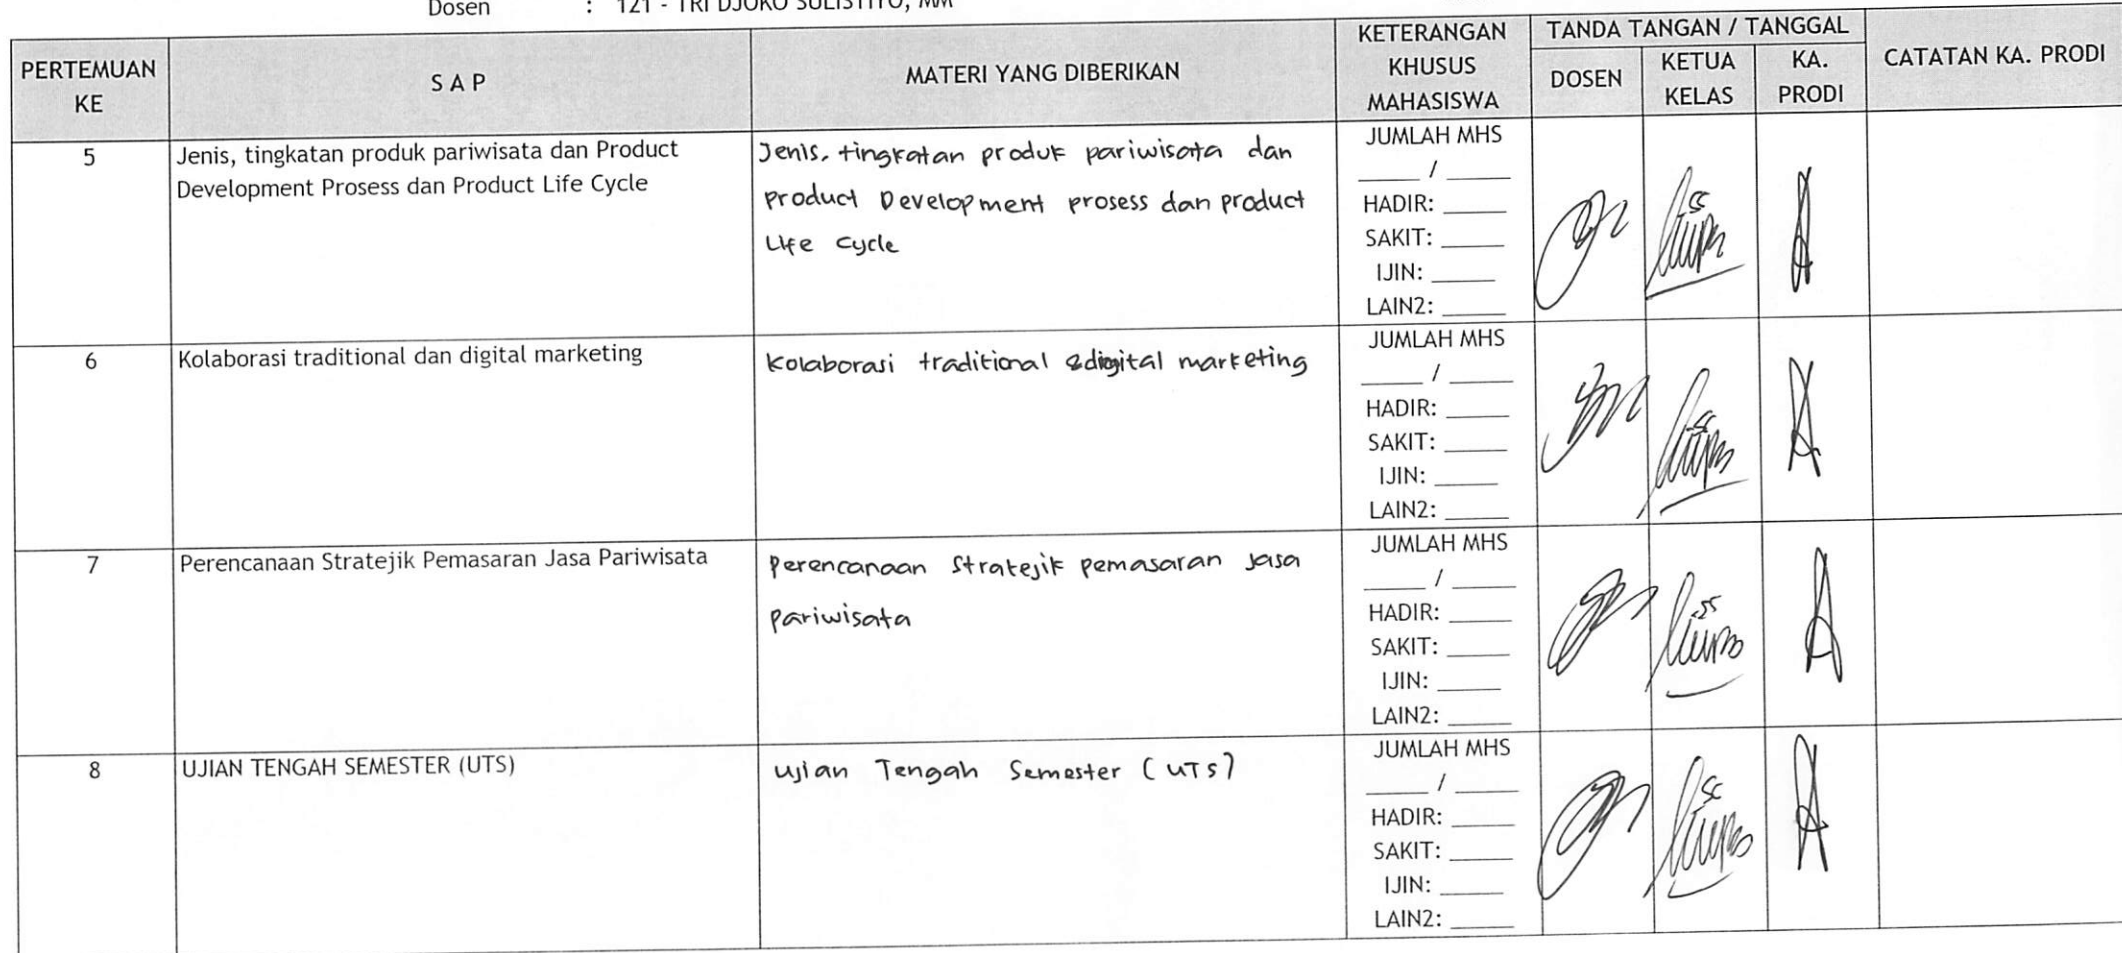 Dosen : 121 - TRI DJOKO SULISTIYO, MM
PERTEMUAN KE
S A P
MATERI YANG DIBERIKAN
KETERANGAN KHUSUS MAHASISWA
TANDA TANGAN / TANGGAL
DOSEN
KETUA KELAS
KA. PRODI
CATATAN KA. PRODI
5
Jenis, tingkatan produk pariwisata dan Product
Development Prosess dan Product Life Cycle
Jenis, tingkatan produk pariwisata dan
product Development prosess dan product
Life cycle
JUMLAH MHS
_____ / _____
HADIR: _____
SAKIT: _____
IJIN: _____
LAIN2: _____
6
Kolaborasi traditional dan digital marketing
Kolaborasi traditional & digital marketing
JUMLAH MHS
_____ / _____
HADIR: _____
SAKIT: _____
IJIN: _____
LAIN2: _____
7
Perencanaan Stratejik Pemasaran Jasa Pariwisata
Perencanaan Stratejik pemasaran Jasa
pariwisata
JUMLAH MHS
_____ / _____
HADIR: _____
SAKIT: _____
IJIN: _____
LAIN2: _____
8
UJIAN TENGAH SEMESTER (UTS)
Ujian Tengah Semester (UTS)
JUMLAH MHS
_____ / _____
HADIR: _____
SAKIT: _____
IJIN: _____
LAIN2: _____